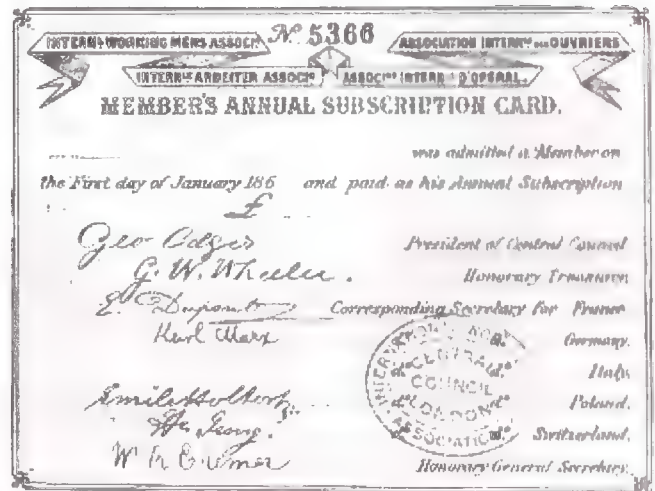 Nº 5366
INTERNAL WORKING MENS ASSOCN
ASSOCIATION INTERNLE DES OUVRIERS
INTERNLE ARBEITER ASSOCN
ASSOCNE INTERNLE D'OPERAI.
MEMBER'S ANNUAL SUBSCRIPTION CARD.
was admitted a Member on
the First day of January 186 and paid as his Annual Subscription
£
Geo Odger President of Central Council
G. W. Wheeler. Honorary Treasurer
E. Dupont Corresponding Secretary for France
Karl Marx Germany.
Italy.
Emile Holtorp Poland.
Hn Jung. Switzerland.
W R Cremer Honorary General Secretary.
CENTRAL
COUNCIL
LONDON
ASSOCIATION